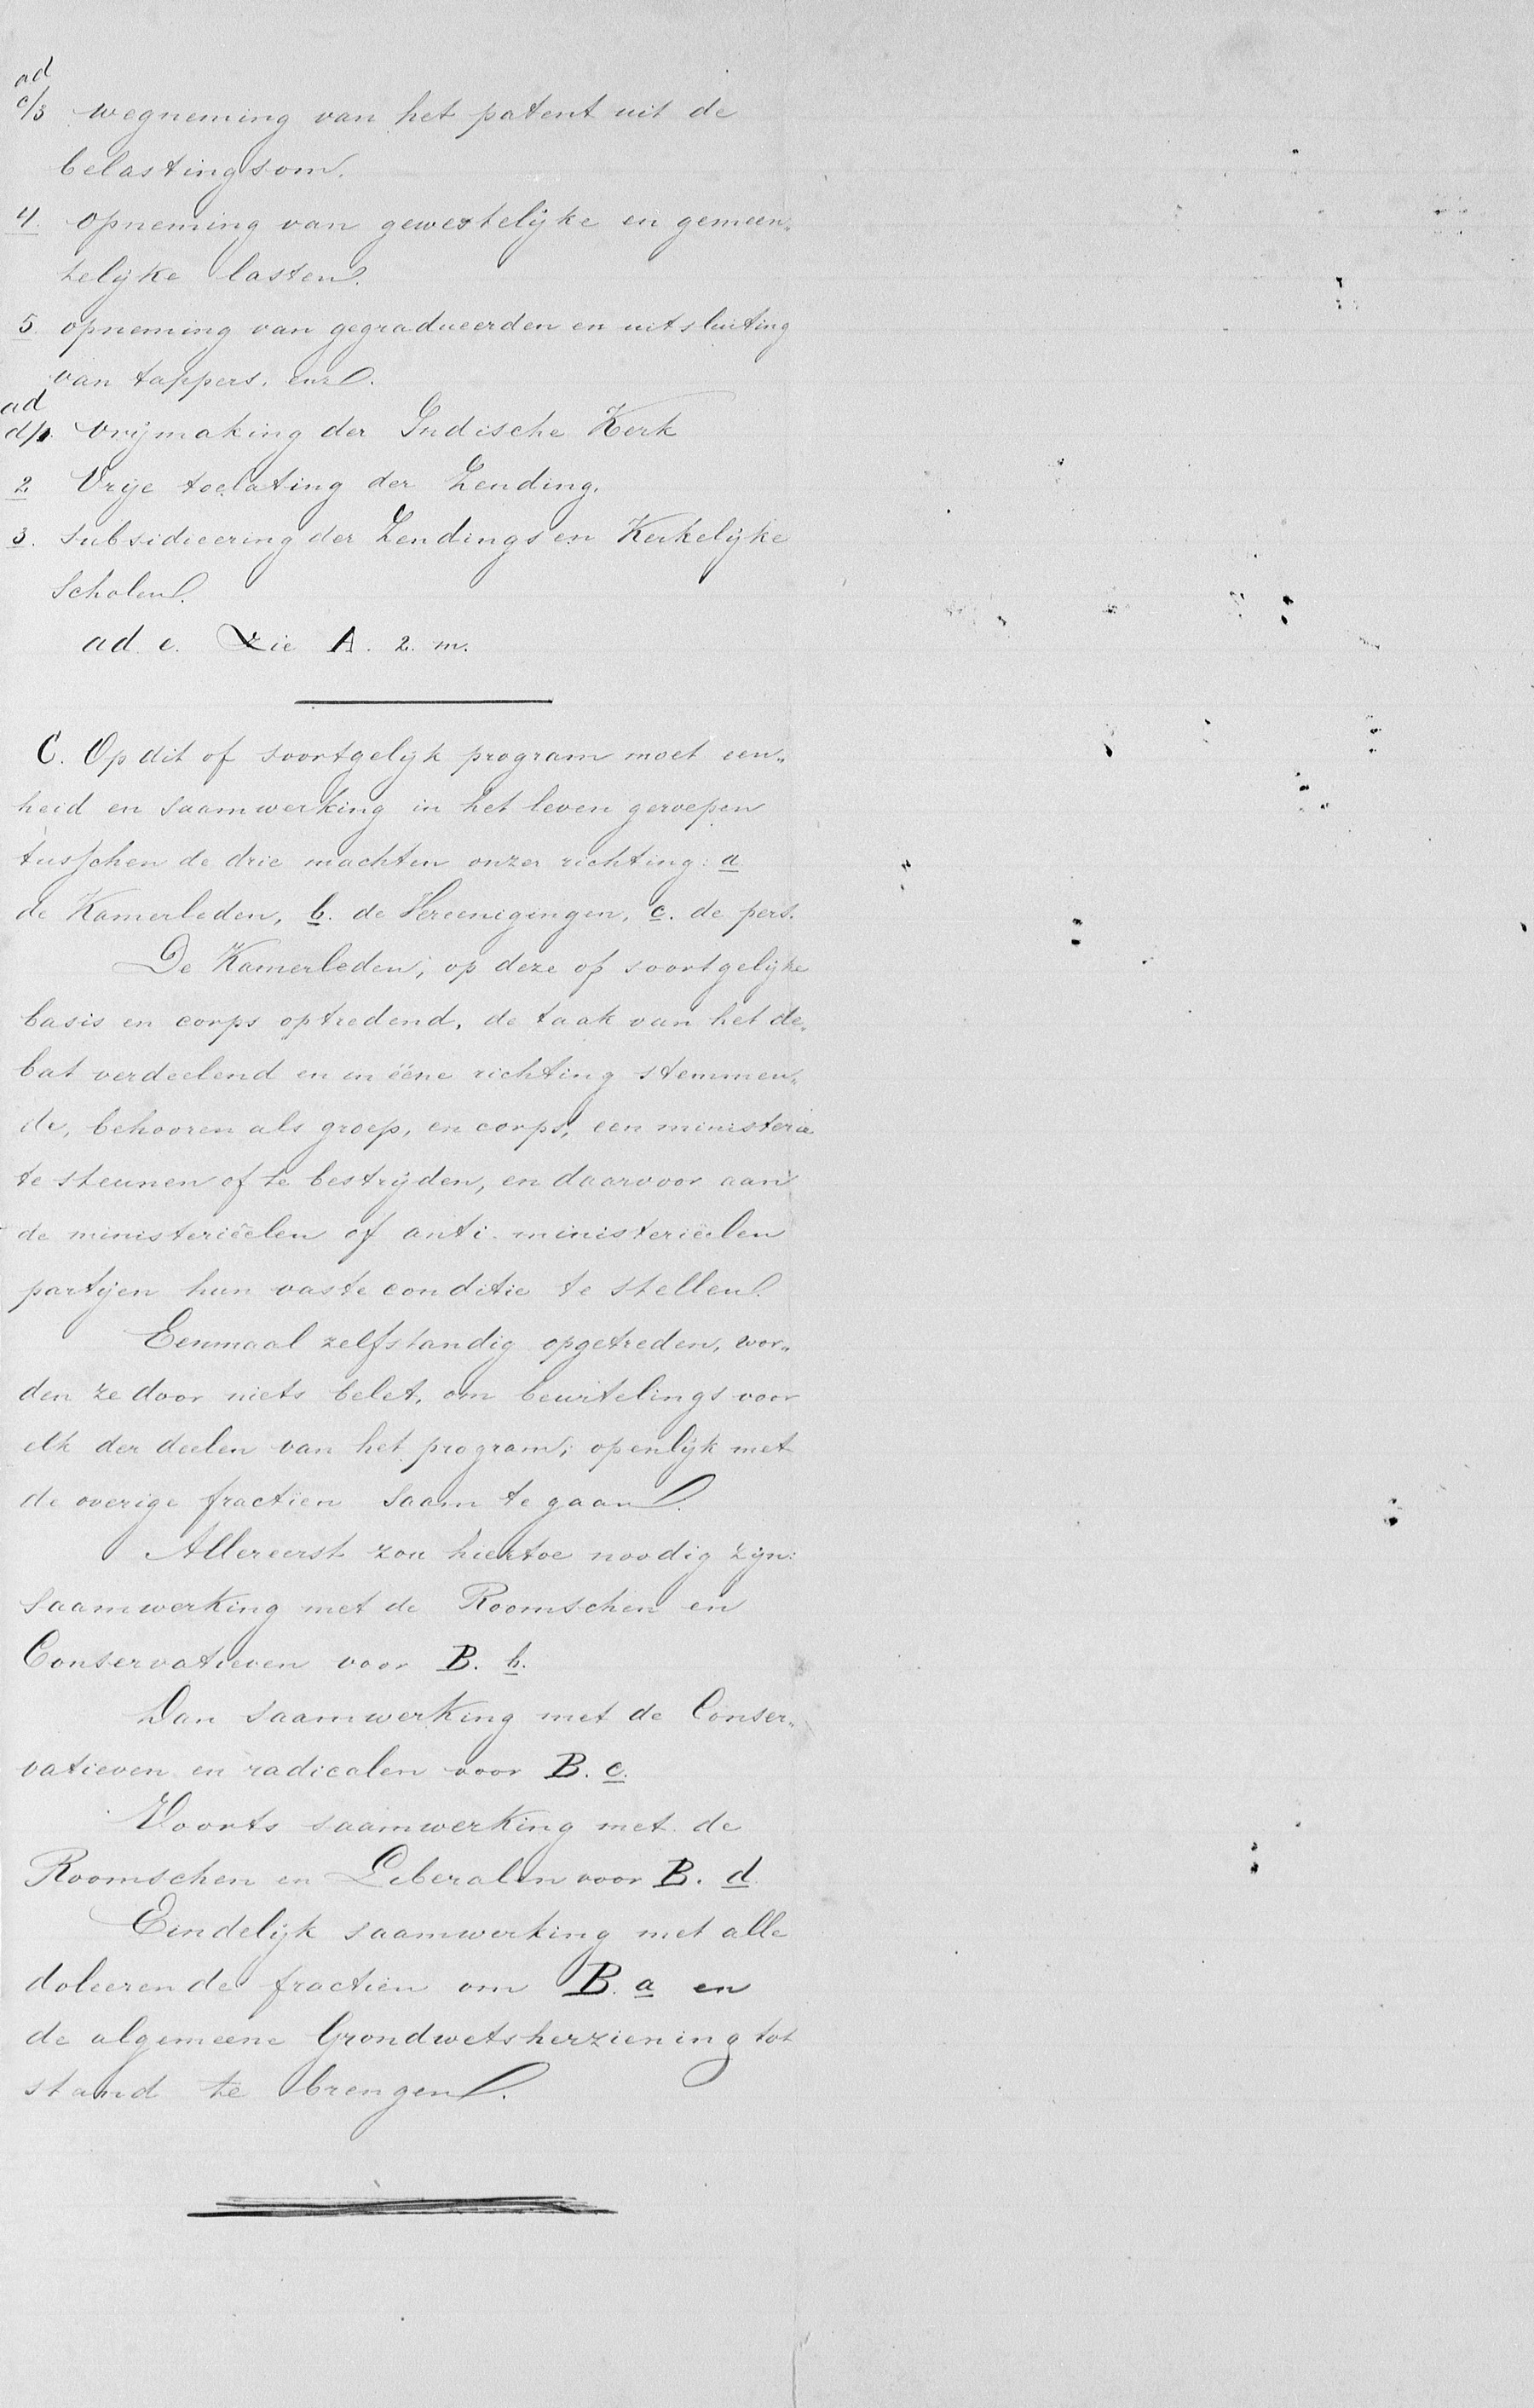 ad
c/3 wegneming van het patent uit de
belastingsom.
4. opneming van gewestelijke en gemeen„
telijke lasten.
5. opneming van gegradueerden en uitsluiting
van tappers, enz.
ad
d/1. Vrijmaking der Indische Kerk
2 Vrije toelating der Zending.
3. subsidieering der Zendings en Kerkelijke
Scholen.
ad e. Zie A. 2. m.
C. Op dit of soortgelijk program moet een„
heid en saamwerking in het leven geroepen
tusschen de drie machten onzer richting: a
de Kamerleden, b. de Vereenigingen, c. de pers.
De Kamerleden, op deze of soortgelijke
basis en corps optredend, de taak van het de„
bat verdeelend en in ééne richting stemmen„
de, behooren als groep, en corps, een ministerie
te steunen of te bestrijden, en daarvoor aan
de ministeriëelen of anti-ministeriëelen
partijen hun vaste conditie te stellen.
Eenmaal zelfstandig opgetreden, wor„
den ze door niets belet, om beurtelings voor
elk der deelen van het program, openlijk met
de overige fractien saam te gaan.
Allereerst zou hiertoe noodig zijn:
saamwerking met de Roomschen en
Conservatieven voor B. b.
Dan saamwerking met de Conser„
vatieven en radicalen voor B. c.
Voorts saamwerking met de
Roomschen en Liberalen voor B. d.
Eindelijk saamwerking met alle
doleerende fractien om B. a en
de algemeene Grondwetsherziening tot
stand te brengen.